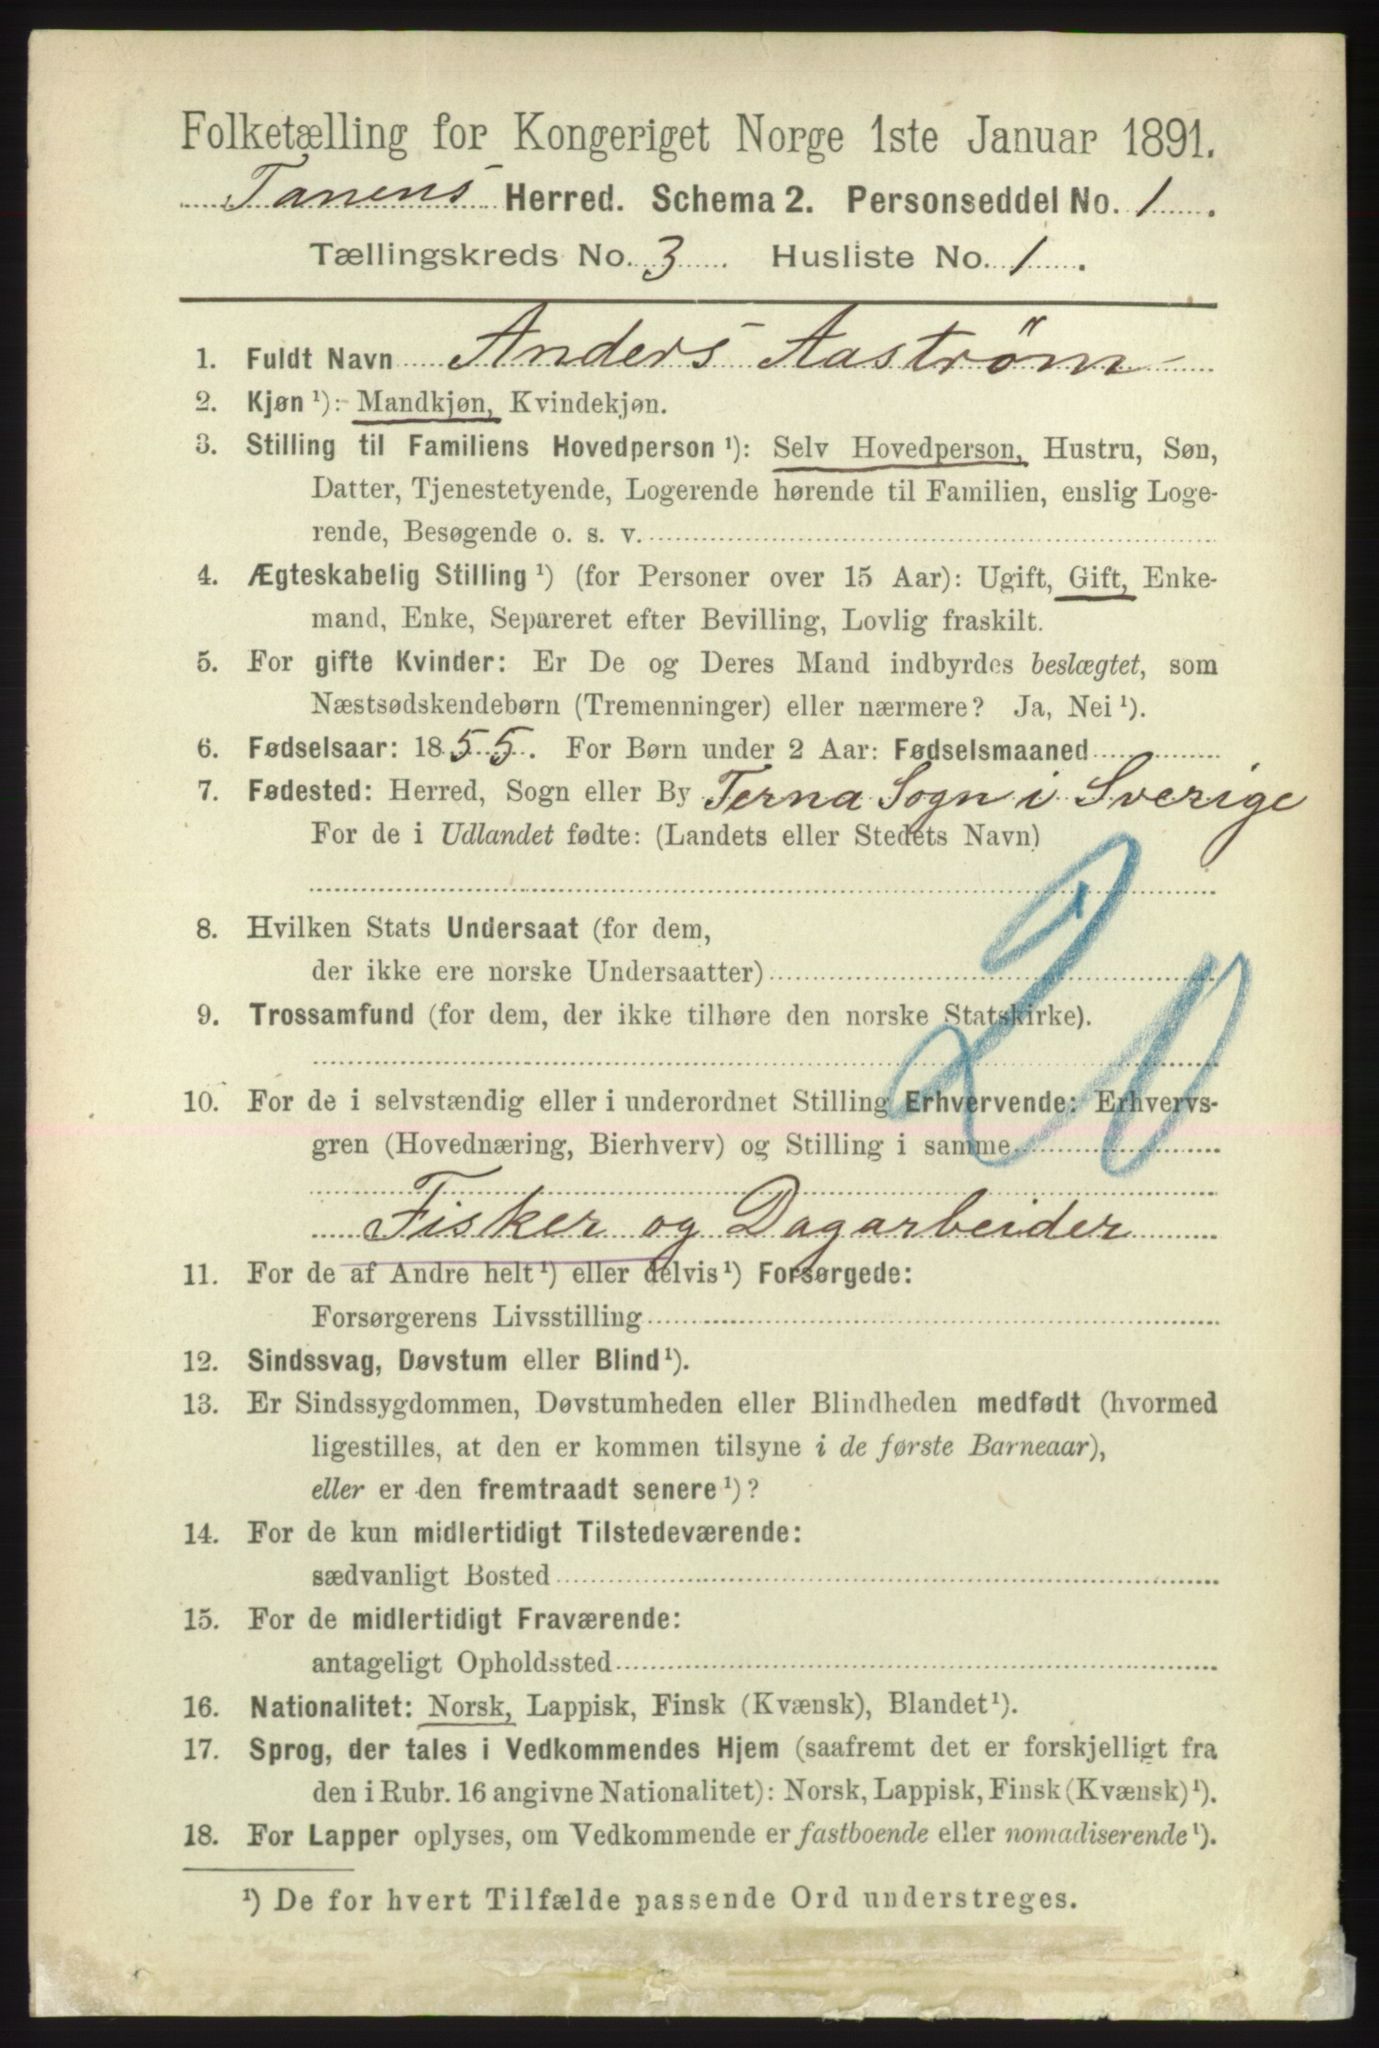 Folketælling for Kongeriget Norge 1ste Januar 1891.
Tanens Herred. Schema 2. Personseddel No. 1.
Tællingskreds No. 3 Husliste No. 1.
1. Fuldt Navn Anders Aastrøm
2. Kjøn ¹): Mandkjøn, Kvindekjøn.
3. Stilling til Familiens Hovedperson ¹): Selv Hovedperson, Hustru, Søn,
Datter, Tjenestetyende, Logerende hørende til Familien, enslig Loge-
rende, Besøgende o. s. v.
4. Ægteskabelig Stilling ¹) (for Personer over 15 Aar): Ugift, Gift, Enke-
mand, Enke, Separeret efter Bevilling, Lovlig fraskilt.
5. For gifte Kvinder: Er De og Deres Mand indbyrdes beslægtet, som
Næstsødskendebørn (Tremenninger) eller nærmere? Ja, Nei ¹).
6. Fødselsaar: 1855. For Børn under 2 Aar: Fødselsmaaned
7. Fødested: Herred, Sogn eller By Terna Sogn i Sverige
For de i Udlandet fødte: (Landets eller Stedets Navn)
20
8. Hvilken Stats Undersaat (for dem,
der ikke ere norske Undersaatter)
9. Trossamfund (for dem, der ikke tilhøre den norske Statskirke).
10. For de i selvstændig eller i underordnet Stilling Erhvervende: Erhvervs-
gren (Hovednæring, Bierhverv) og Stilling i samme
Fisker og Dagarbeider
11. For de af Andre helt ¹) eller delvis ¹) Forsørgede:
Forsørgerens Livsstilling
12. Sindssvag, Døvstum eller Blind ¹).
13. Er Sindssygdommen, Døvstumheden eller Blindheden medfødt (hvormed
ligestilles, at den er kommen tilsyne i de første Barneaar),
eller er den fremtraadt senere ¹)?
14. For de kun midlertidigt Tilstedeværende:
sædvanligt Bosted
15. For de midlertidigt Fraværende:
antageligt Opholdssted
16. Nationalitet: Norsk, Lappisk, Finsk (Kvænsk), Blandet ¹).
17. Sprog, der tales i Vedkommendes Hjem (saafremt det er forskjelligt fra
den i Rubr. 16 angivne Nationalitet): Norsk, Lappisk, Finsk (Kvænsk) ¹).
18. For Lapper oplyses, om Vedkommende er fastboende eller nomadiserende ¹).
¹) De for hvert Tilfælde passende Ord understreges.